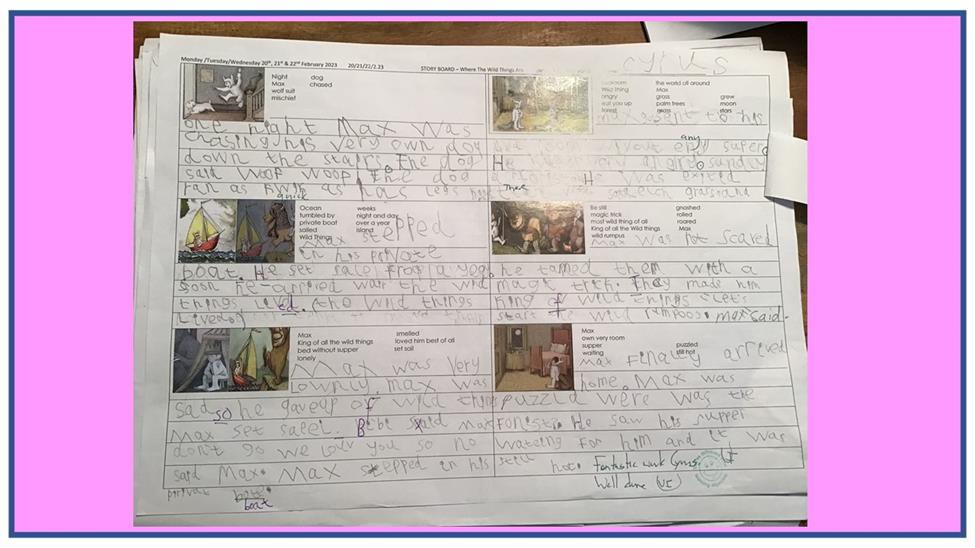 Monday /Tuesday/Wednesday 20th, 21st & 22nd February 2023 20/21/22/2.23 STORY BOARD – Where The Wild Things Are
Night dog
Max chased
wolf suit
mischief
one night Max was
chasing his very own dog
down the stairs. The dog
said woop woop! The dog
ran as quick as has legs
the world all around
Wild thing Max
angry grass grew
eat you up palm trees moon
forest stars
max sent to his
any
He angry sundly
He was exited
grass and
Ocean weeks
tumbled by night and day
private boat over a year
sailed island
Wild Things
Max stepped
in his private
boat. He set sale for a year.
soon he arrived war the wild
things lived. the wild things
lived
Be still gnashed
magic trick rolled
most wild thing of all roared
King of all the Wild things Max
wild rumpus
Max was not scared
he tamed them with a
magic trick. They made him
King of wild things "Let's
start the wild rumpoos" max said.
Max smelled
King of all the wild things loved him best of all
bed without supper set sail
lonely
Max was very
lownly. max was
sad so he gave up of wild things
Max set sale. But said max
don't go we love you so no
said Max. Max stepped in his
private
boat
Max
own very room
supper puzzled
waiting still hot
Max Finally arrived
home. Max was
puzzld were was the
He saw his supper
wateing for him and it was
still hot.
Fantastic work
Well done